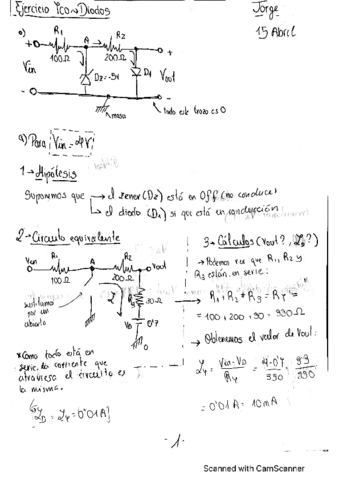 Ejercicio 1 con Diodos
Jorge
15 Abril
a)
R1
A
R2
100Ω
200Ω
Vin
Dz=-5V
D1
Vout
masa
todo este trazo es 0
a) Para Vin = 4V
1→ Hipótesis
Suponemos que → el zener (Dz) está en Off (no conduce)
→ el diodo (D1) si que está en conducción
2→ Circuito equivalente
Vin
R1
A
R2
Vout
100Ω
200Ω
sustituimos
por un
abierto
30Ω
VD
0'7
* Como todo está en
serie. La corriente que
atraviesa el circuito es
la misma.
3→ Cálculos (Vout?,
→ Podemos ver que R1, R2 y
R3 están en serie:
→ Obtenemos el valor de Vout:
= 0'01 A = 10 mA
- 1 -
Scanned with CamScanner